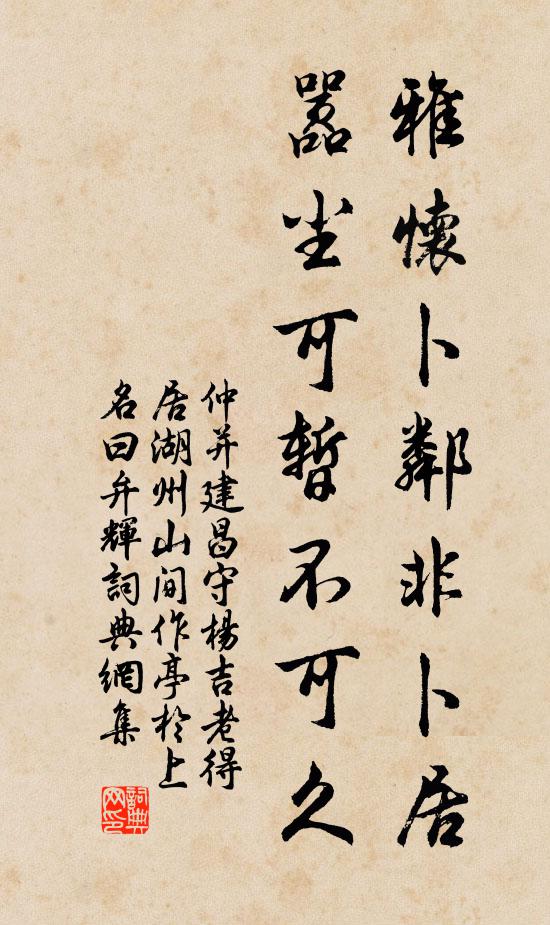 雅懷卜鄰非卜居
囂尘可暫不可久
仲并建昌守楊吉老得
居湖州山间作亭於上
名曰弁輝詞典網集
詞典網印